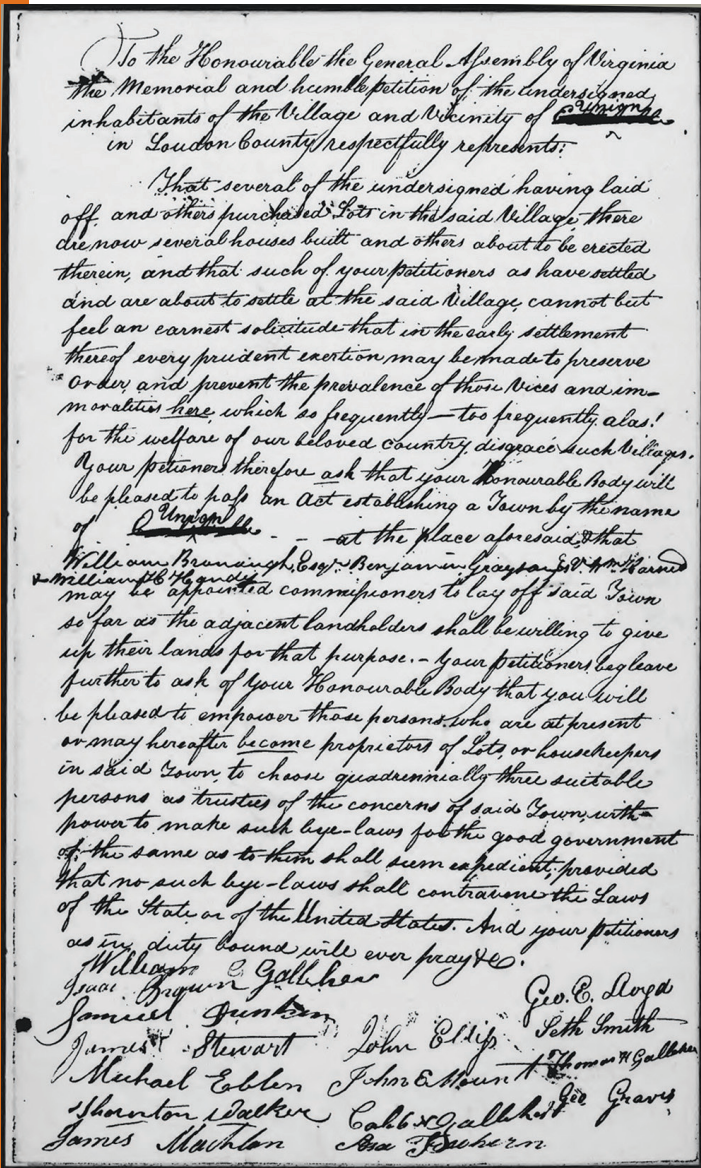 To the Honourable the General Assembly of Virginia
the Memorial and humble petition of the undersigned
inhabitants of the Village and Vicinity of Union
in Loudon County respectfully represents:
That several of the undersigned having laid
off, and others purchased Lots in the said Village, there
are now several houses built and others about to be erected
therein, and that such of your petitioners as have settled
and are about to settle at the said Village, cannot but
feel an earnest solicitude that in the early settlement
thereof every prudent exertion may be made to preserve
Order, and prevent the prevalence of those Vices and im-
moralities here, which so frequently — too frequently, alas!
for the welfare of our beloved country, disgrace such Villages.
Your petioners therefore ask that your Honourable Body will
be pleased to pass an Act establishing a Town by the name
of Union - - at the place aforesaid, & that
William Bronaugh, Esqr. Benjamin Grayson Wm Harned
& William H Handy
may be appointed commissioners to lay off said Town
so far as the adjacent landholders shall be willing to give
up their lands for that purpose. - Your petitioners beg leave
further to ask of Your Honourable Body that you will
be pleased to empower those persons who are at present
or may hereafter become proprietors of Lots, or housekeepers
in said Town, to choose quadrennially three suitable
persons as trustees of the concerns of said Town, with
power to make such bye-laws for the good government
of the same as to them shall seem expedient; provided
that no such bye-laws shall contravene the Laws
of the State or of the United States. And your petitioners
as in duty bound will ever pray &c.
William G Galleher
Isaac Brown
Samuel Dunkin
James Stewart
Michael Eblen
Thornton Walker
James Machlan
John Ellis
John E Mount
Caleb N Galleher
Asa
Geo. E. Loyd
Seth Smith
Thomas H Galleher
Geo Graves